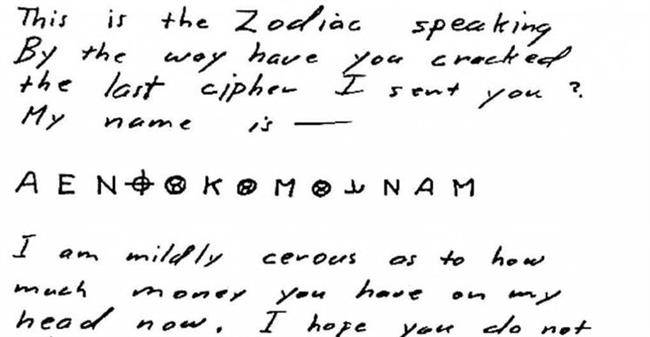 This is the Zodiac speaking
By the way have you cracked
the last cipher I sent you ?
My name is —
A E N ⌖ ⊗ K ⊗ M ⊗ N A M
I am mildly cerous as to how
much money you have on my
head now. I hope you do not